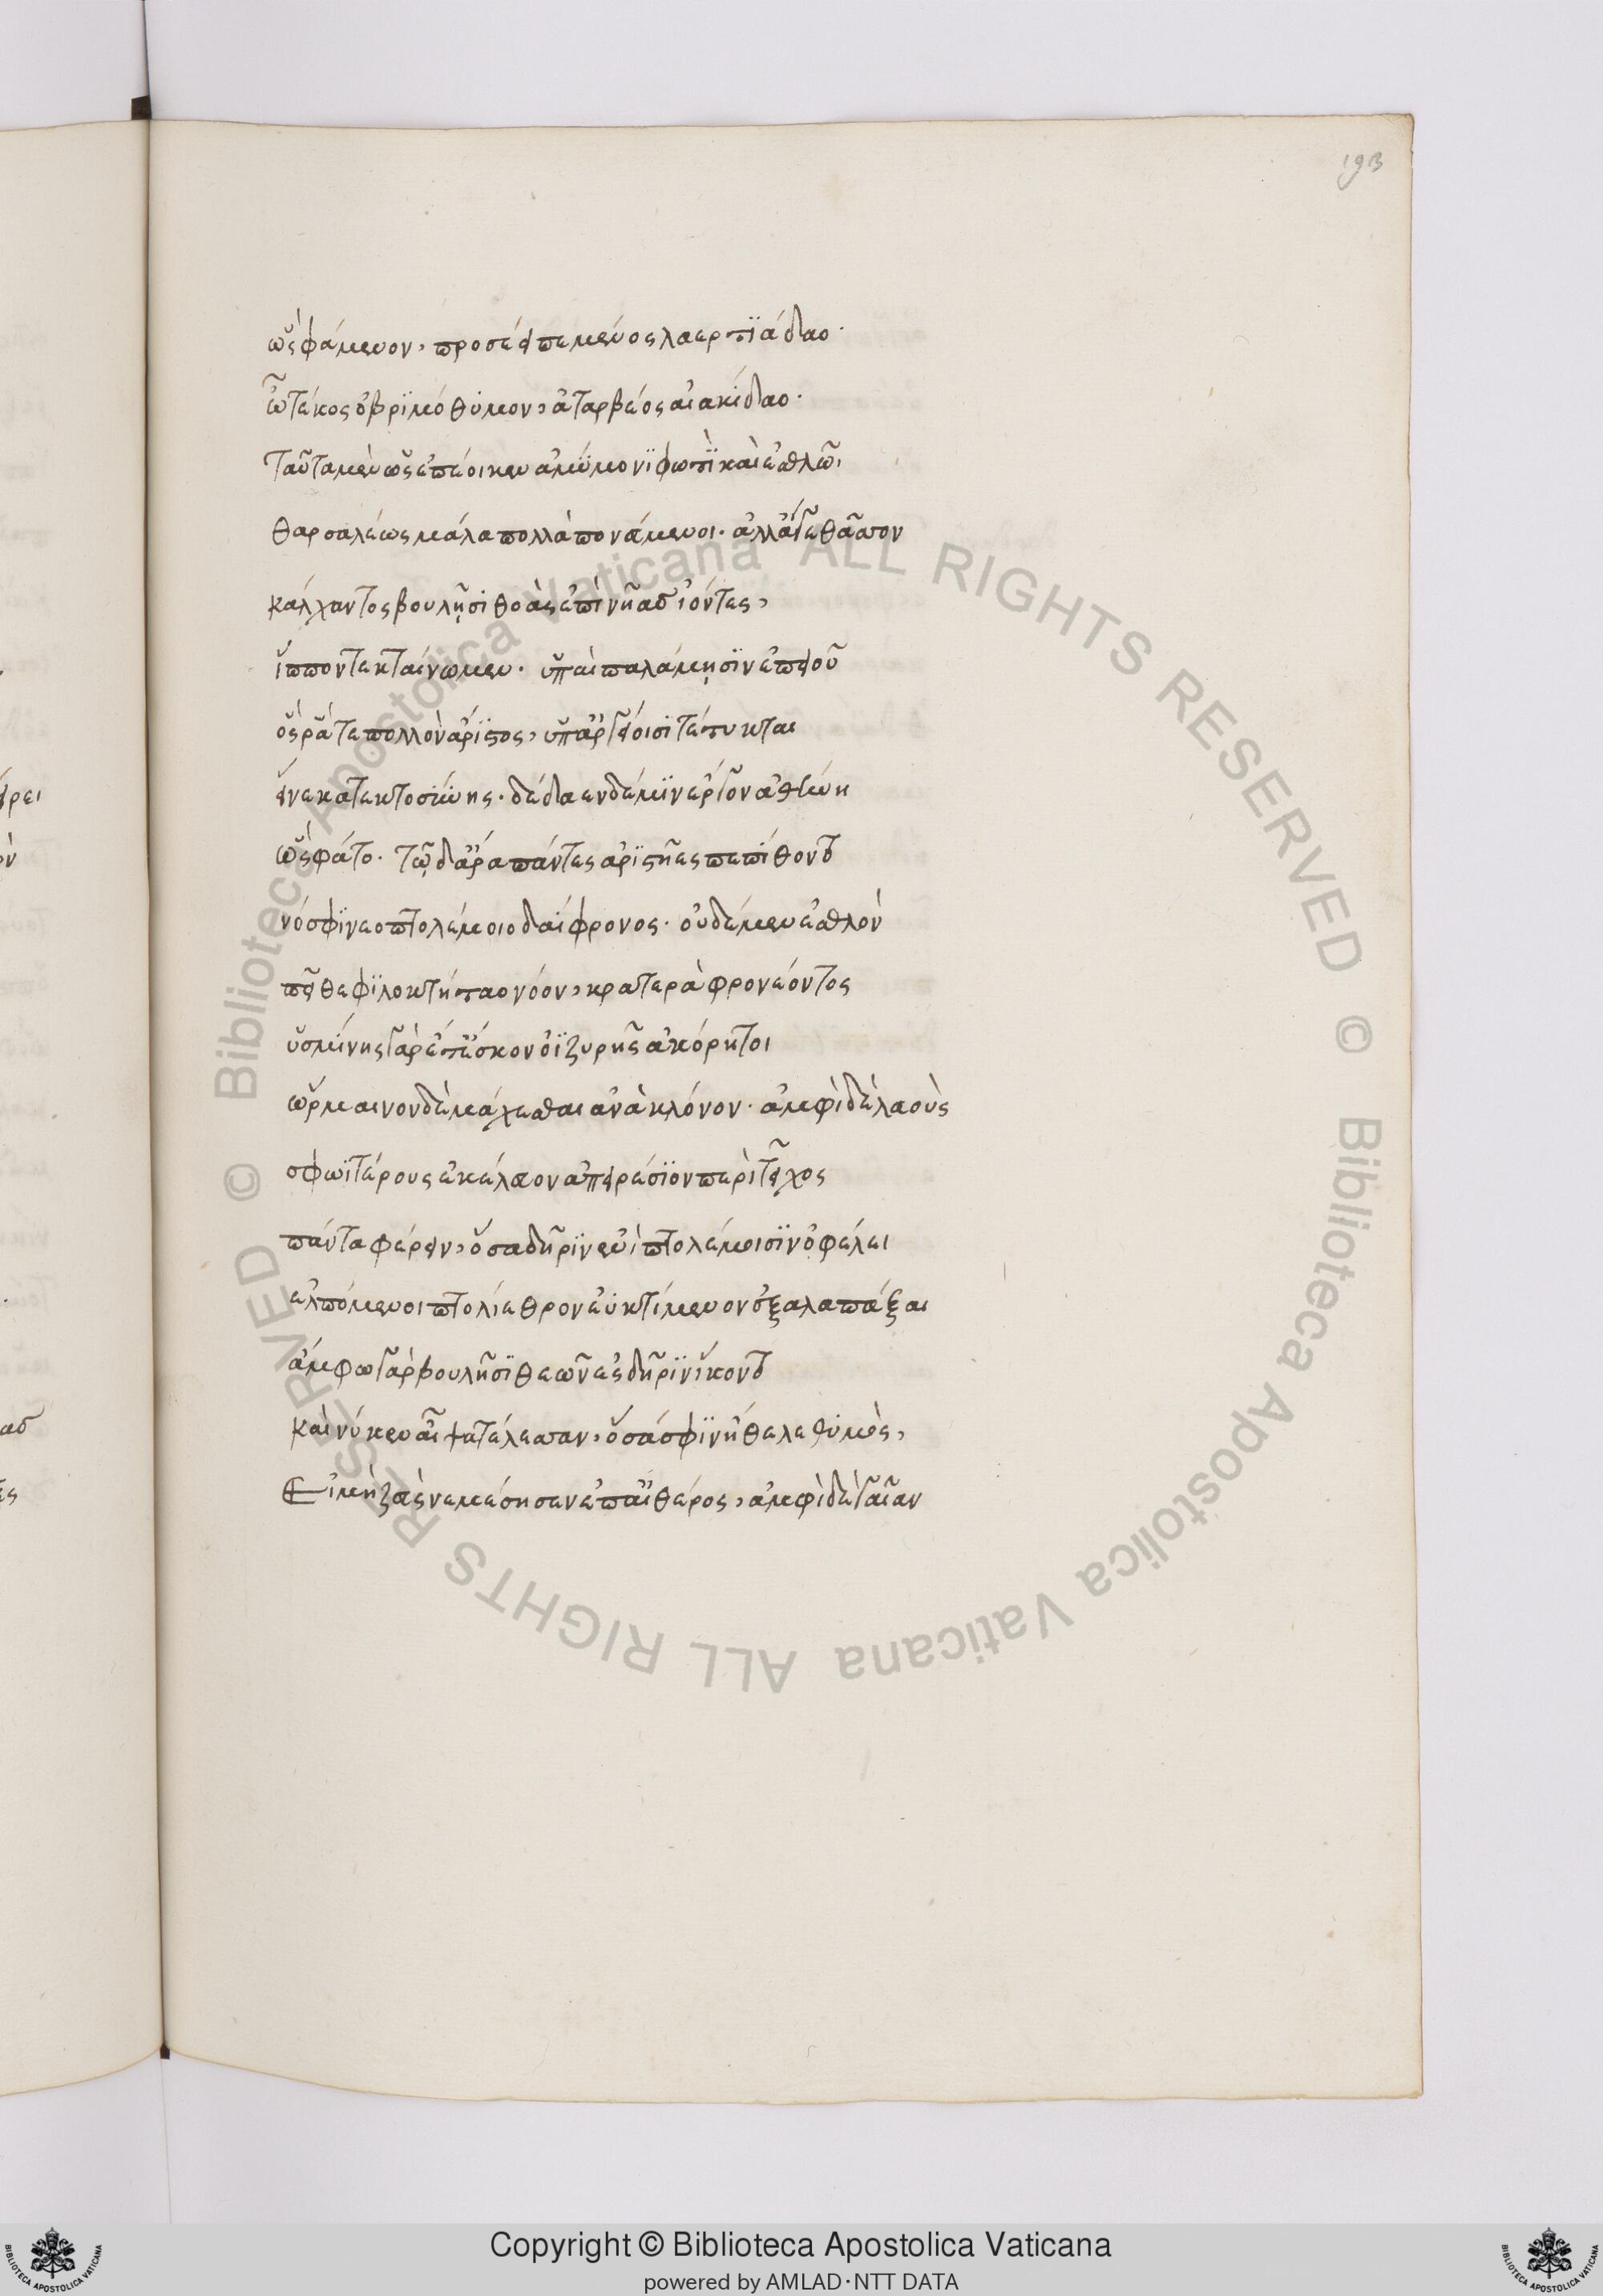 193
ὣς φάμενον, προσέειπε μένος λαερτϊάδαο·
ὦ τέκος ὀβρϊμόθυμον, ἀταρβέος αἰακίδαο·
ταῦτα μὲν ὡς ἐπέοικεν ἀμύμονϊ φωτϊ καὶ ἐσθλῶ
θαρσαλέως μάλα πολλὰ πονάμενοι· ἀλλά γε θᾶσσον
κάλχαντος βουλῇσι θοὰς ἐπὶ νῆας ἰόντες,
ἵππον τεκταίνωμεν· ὑπαὶ παλάμῃσϊν ἐπειοῦ
ὅς ῥά τε πολλὸν ἄριστος, ὑπ' ἀργείοισι τέτυκται
εἵνεκα τεκτοσύνης· δέδαεν δέ μϊν ἔργον ἀθήνη
ὣς φάτο· τῷ δ' ἄρα πάντες ἀρϊστῆες πεπίθοντο
νόσφϊ νεοπτολέμοιο δαΐφρονος· οὐδὲ μὲν ἐσθλὸν
πεῖθε φϊλοκτήταο νόον, κρατερὰ φρονέοντος
ὑσμίνης γὰρ ἔτ' ἔσκον ὀϊζυρῆς ἀκόρητοι
ὥρμαινον δὲ μάχεσθαι ἀνὰ κλόνον· ἀμφὶ δὲ λαοὺς
σφωϊτέρους ἐκέλευον ἀπειρέσϊον περὶ τεῖχος
πάντα φέρειν, ὅσα δῆρϊν ἐνὶ πτολέμοισϊν ὀφέλει
ἐλπόμενοι πτολίεθρον ἐϋκτίμενον ἐξαλαπάξαι
ἄμφω γὰρ βουλῇσϊ θεῶν ἐς δῆρϊν ἵκοντο
καί νύ κεν αἶψ' ἐτέλεσσαν, ὅσά σφϊν ἤθελε θυμὸς,
Εἰ μὴ ζεὺς νεμέσησεν ἐπ' αἰθέρος, ἀμφὶ δὲ γαῖαν
Copyright © Biblioteca Apostolica Vaticana
powered by AMLAD·NTT DATA
© Biblioteca Apostolica Vaticana ALL RIGHTS RESERVED © Biblioteca Apostolica Vaticana ALL RIGHTS RESERVED